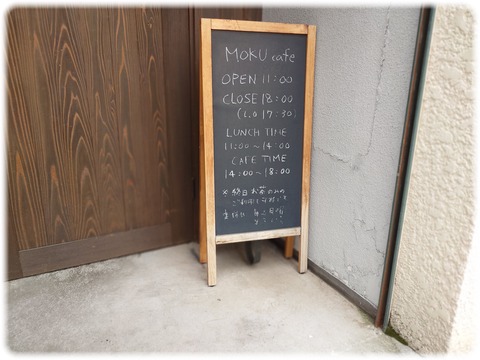 MOKU cafe
OPEN 11:00
CLOSE 18:00
(L.O 17:30)
LUNCH TIME
11:00〜14:00
CAFE TIME
14:00〜18:00
※終日お茶のみの
ご利用も可能